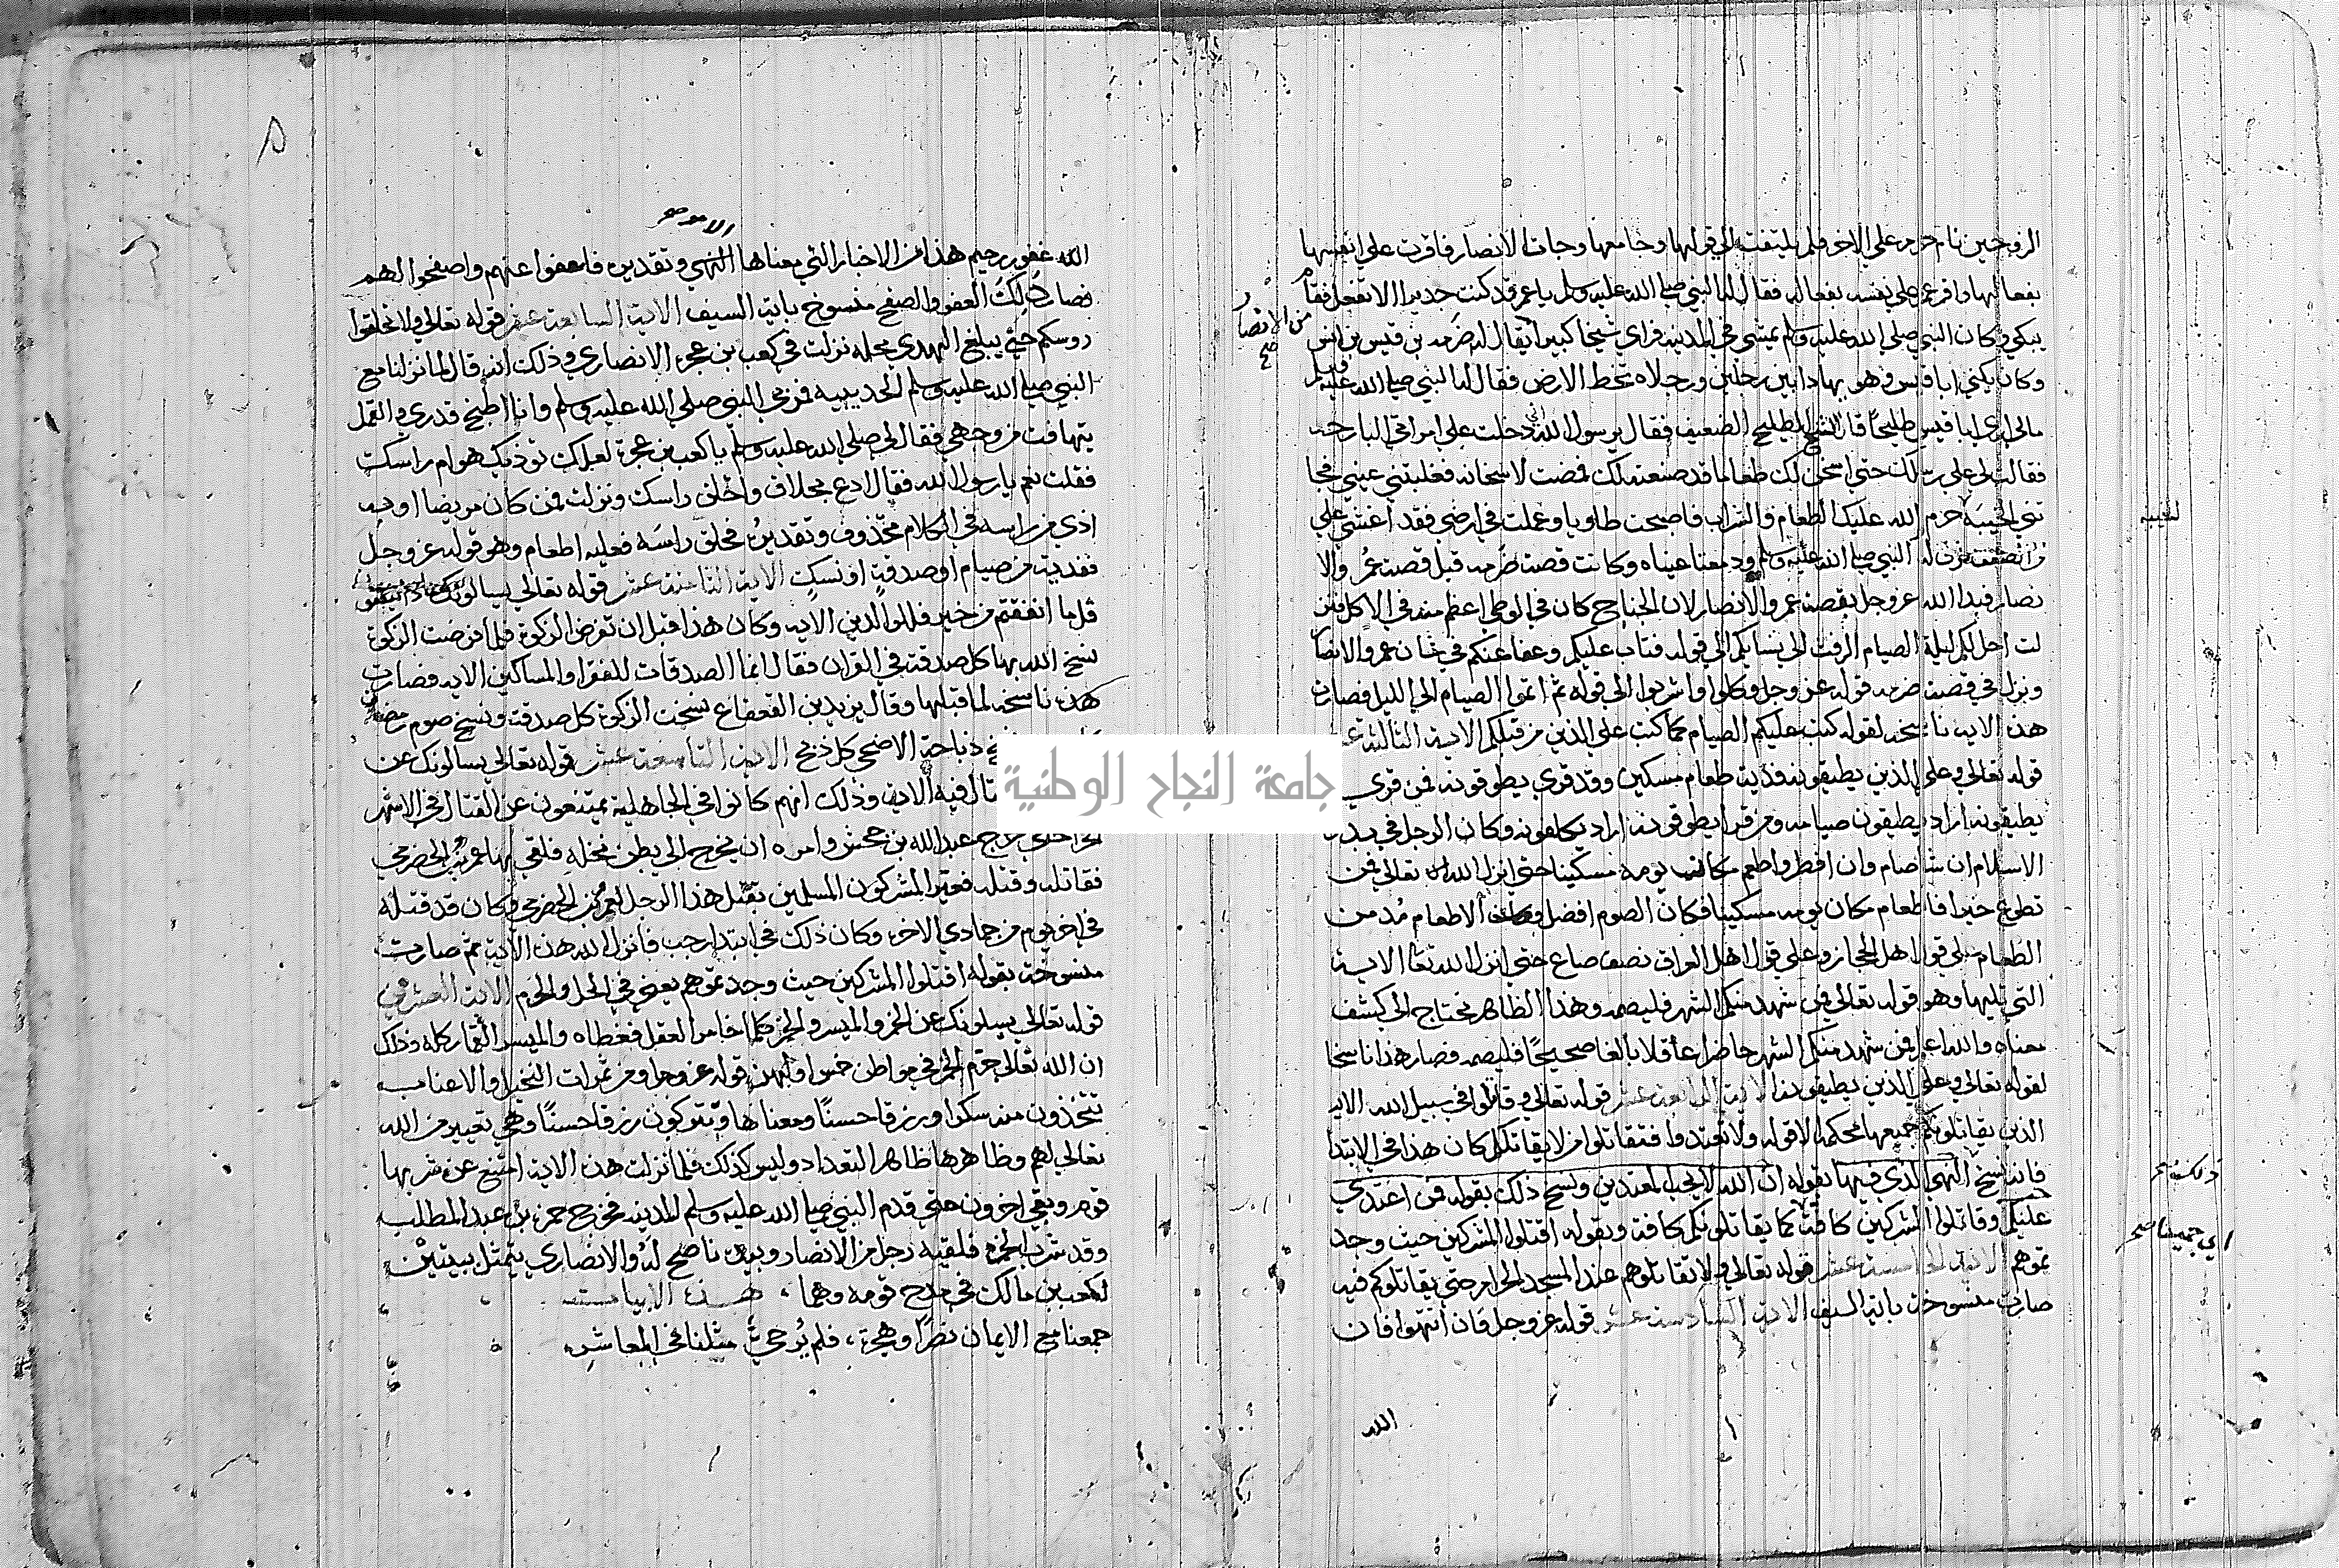 الزوجين نام حرم علي الاخر فلم يلتفت الي قولها وجامعها وجات الانصار فاقرت علي انفسها
بفعالها واقر عمر علي نفسه بفعاله فقال له النبي صلي الله عليه وسلم يا عمر قد كنت جديرا الا تفعل فقام
يبكي وكان النبي صلي الله عليه وسلم يمشي في المدينه فراي شيخا كبيرا يقال له صرمه بن قيس بن انس
من الانصار صح
وكان يكني ابا قيس وهو يهادا بين رجلين ورجلاه تخط الارض فقال له النبي صلي الله عليه وسلم
مالي اري ابا قيس طليحا قال الشيخ الطليح الضعيف فقال يرسول الله اني دخلت علي امراتي البارحه
فقالت لي علي رسلك حتي اسخن لك طعاما قد صنعته لك فمضت لاسخانه فغلبتني عيني فجا
تني لخيبه حرم الله عليك الطعام والشراب فاصبحت طاويا وعملت في ارضي فقد اغشي علي
النبي صلي الله عليه وسلم ودمعتا عيناه وكانت قصة صرمه قبل قصة عمر والا
نصار فبدا الله عز وجل بقصة عمر والانصار لان الجناح كان في الوطي اعظم منه في الاكل فنز
لت احل لكم ليلة الصيام الرفث الي نسايكم الي قوله فتاب عليكم وعفا عنكم في شان عمر والانصار
ونزل في قصة صرمه قوله عز وجل وكلوا واشربوا الي قوله ثم اتموا الصيام الي الليل فصارت
هذه الايه ناسخه لقوله كتب عليكم الصيام كما كتب علي الذين من قبلكم الاية الثالثة
قوله تعالي وعلي الذين يطيقونه فدية طعام مسكين وقد قري يطوقونه فمن قري
يطيقونه اراد يطيقون صيامه ومن قرا يطوقونه اراد يكلفونه وكان الرجل في بد
الاسلام ان شا صام وان افطر واطعم مكان يومه مسكينا حتي انزل الله تعالي فمن
تطوع خيرا فاطعام مكان يومه مسكينا فكان الصوم افضل الاطعام مد من
الطعام علي قول اهل الحجاز وعلي قول اهل العراق نصف صاع حتي انزل الله تعا الاية
التي تليها وهو قوله تعالي فمن شهد منكم الشهر فليصمه وهذا الظاهر يحتاج الي كشف
معناه والله اعلم فمن شهد منكم الشهر حاضرا عاقلا بالغا صحيحا فليصمه فصار هذا ناسخا
لقوله تعالي وعلي الذين يطيقونه الاية الرابعة عشر قوله تعالي وقاتلوا في سبيل الله الايه
الذين يقاتلونكم جميعها محكمه الا قوله ولا تعتدوا فتقاتلوا من لا يقاتلكم كان هذا في الابتدا
فانه نسخ النهي الذي فيها بقوله ان الله لا يحب المعتدين ونسخ ذلك بقوله فمن اعتدي
عليكم وقاتلوا المشركين كافة كما يقاتلونكم كافة وبقوله اقتلوا المشركين حيث وجد
تموهم الاية الخامسة عشر قوله تعالي ولا تقاتلوهم عند المسجد الحرام حتي يقاتلوكم فيه
صارت منسوخة باية السيف الاية السادسة عشر قوله عز وجل فان انتهوا فان
الله
الله غفور رحيم هذا من الاخبار التي معناها النهي وتقديره فاعفوا عنهم واصفحوا لهم
فصار ذلك العفو والصفح منسوخ باية السيف الاية السابعة عشر قوله تعالي ولا تحلقوا
روسكم حتي يبلغ الهدي محله نزلت في كعب بن عجره الانصاري وذلك انه قال لما نزلنا مع
النبي صلي الله عليه وسلم الحديبيه فمر بي النبي صلي الله عليه وسلم وانا اطبخ قدري والقمل
يتهافت من وجهي فقال لي صلي الله عليه وسلم يا كعب بن عجرة لعلك توذيك هوام راسك
فقلت نعم يا رسول الله فقال ادع بحلاق واحلق راسك ونزلت فمن كان مريضا او به
اذي من راسه في الكلام محذوف وتقديره فحلق راسه فعليه اطعام وهو قوله عز وجل
ففدية من صيام او صدقة او نسك الاية الثامنة عشر قوله تعالي يسالونك ماذا ينفقون
قل ما انفقتم من خير فللوالدين الايه وكان هذا قبل ان تفرض الزكوة فلما فرضت الزكوة
نسخ الله بها كل صدقة في القران فقال انما الصدقات للفقرا والمساكين الايه فصارت
هذه ناسخه لما قبلها وقال يزيد بن القعقاع نسخت الزكوة كل صدقة ونسخ صوم رمضان
ذباحة الاضحي كل ذبح الاية التاسعة عشر قوله تعالي يسالونك عن
جامعة النجاح الوطنية
قتال فيه الاية وذلك انهم كانوا في الجاهلية يمتنعون عن القتال في الاشهر
خرج عبد الله بن جحش وامره ان يخرج الي بطن نخله فلقي بها عمرو بن الحضرمي
فقاتله وقتله فعير المشركون المسلمين بقتل هذا الرجل لعمرو بن الحضرمي وكان قد قتله
في اخر يوم من جمادي الاخره وكان ذلك في ابتدا رجب فانزل الله هذه الاية ثم صارت
منسوخة بقوله اقتلوا المشركين حيث وجدتموهم يعني في الحل والحرم الاية العشرون
قوله تعالي يسيلونك عن الخمر والميسر والخمر كلما خامر العقل فغطاه والميسر القمار كله وذلك
ان الله تعالي حرم الخمر في مواطن خمس اولهن قوله عز وجل ومن ثمرات النخيل والاعناب
تتخذون منه سكرا ورزقا حسنا ومعناها وتتركون رزقا حسنا وهي تعيير من الله
تعالي لهم وظاهرها ظاهر التعداد وليس كذلك فلما نزلت هذه الاية امتنع عن شربها
قوم وبقي اخرون حتي قدم النبي صلي الله عليه وسلم المدينه فخرج حمزه بن عبد المطلب
وقد شرب الخمر فلقيه رجل من الانصار وبيده ناضح له والانصاري يتمثل ببيتين
لكعب بن مالك في مدح قومه وهما هذه الابيات
جمعنا مع الايمان نصرا وهجرة، فلم يُر حي مثلنا في المعاشر